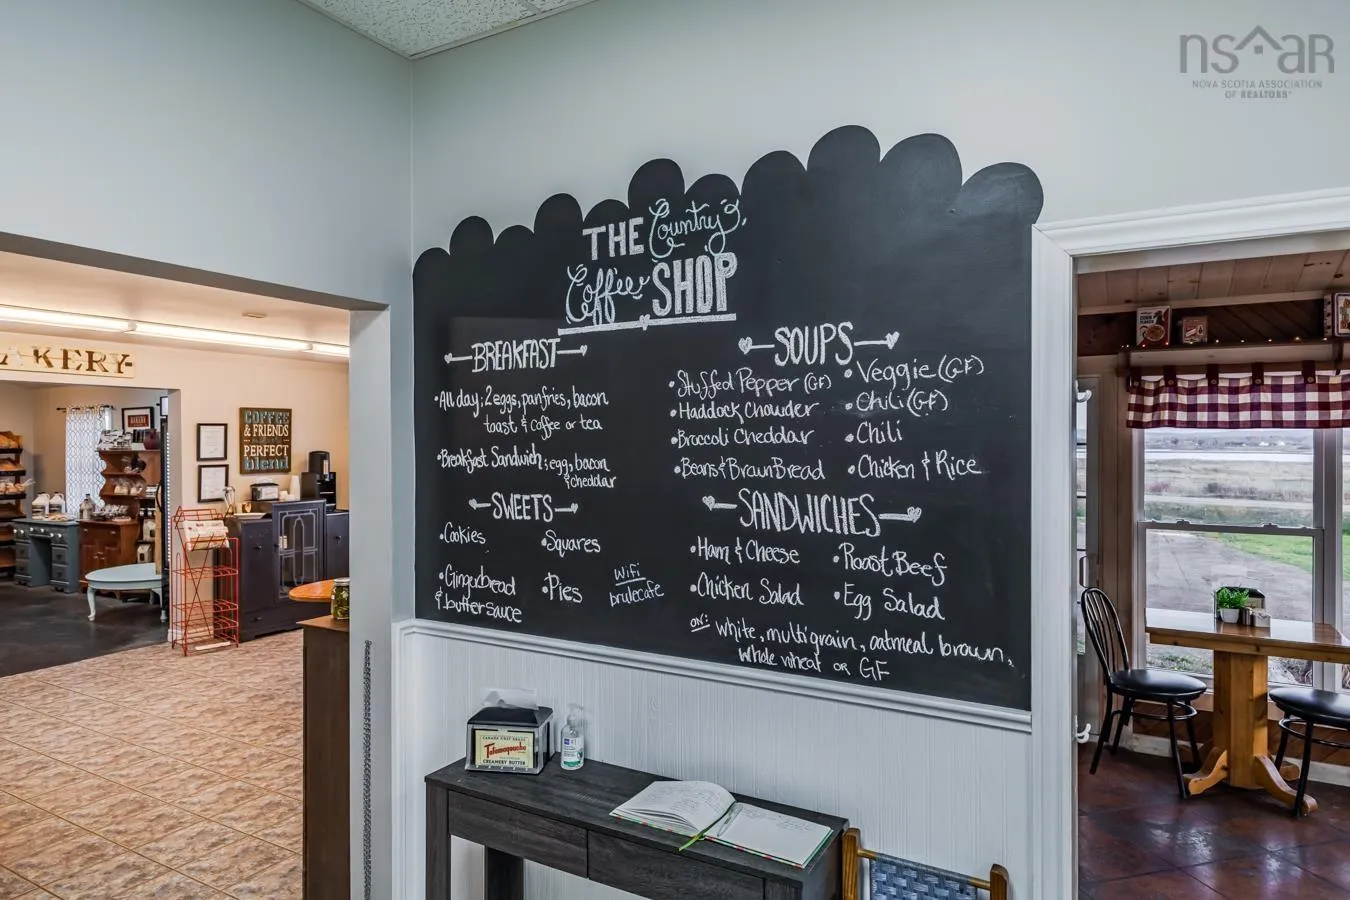 nsaR
NOVA SCOTIA ASSOCIATION
OF REALTORS®
THE Country
Coffee SHOP
BREAKFAST
•All day; 2 eggs, panfries, bacon
toast & coffee or tea
•Breakfast Sandwich; egg, bacon
& cheddar
SWEETS
•Cookies
•Squares
•Gingerbread
& buttersauce
•Pies
WiFi
brulecafe
SOUPS
•Stuffed Pepper (GF)
•Veggie (GF)
•Haddock Chowder
•Chili (GF)
•Broccoli Cheddar
•Chili
•Beans & Braun Bread
•Chicken & Rice
SANDWICHES
•Ham & Cheese
•Roast Beef
•Chicken Salad
•Egg Salad
on: white, multigrain, oatmeal brown,
whole wheat or GF
AKERY
COFFEE
& FRIENDS
PERFECT
blend
Tatamagouche
CREAMERY BUTTER